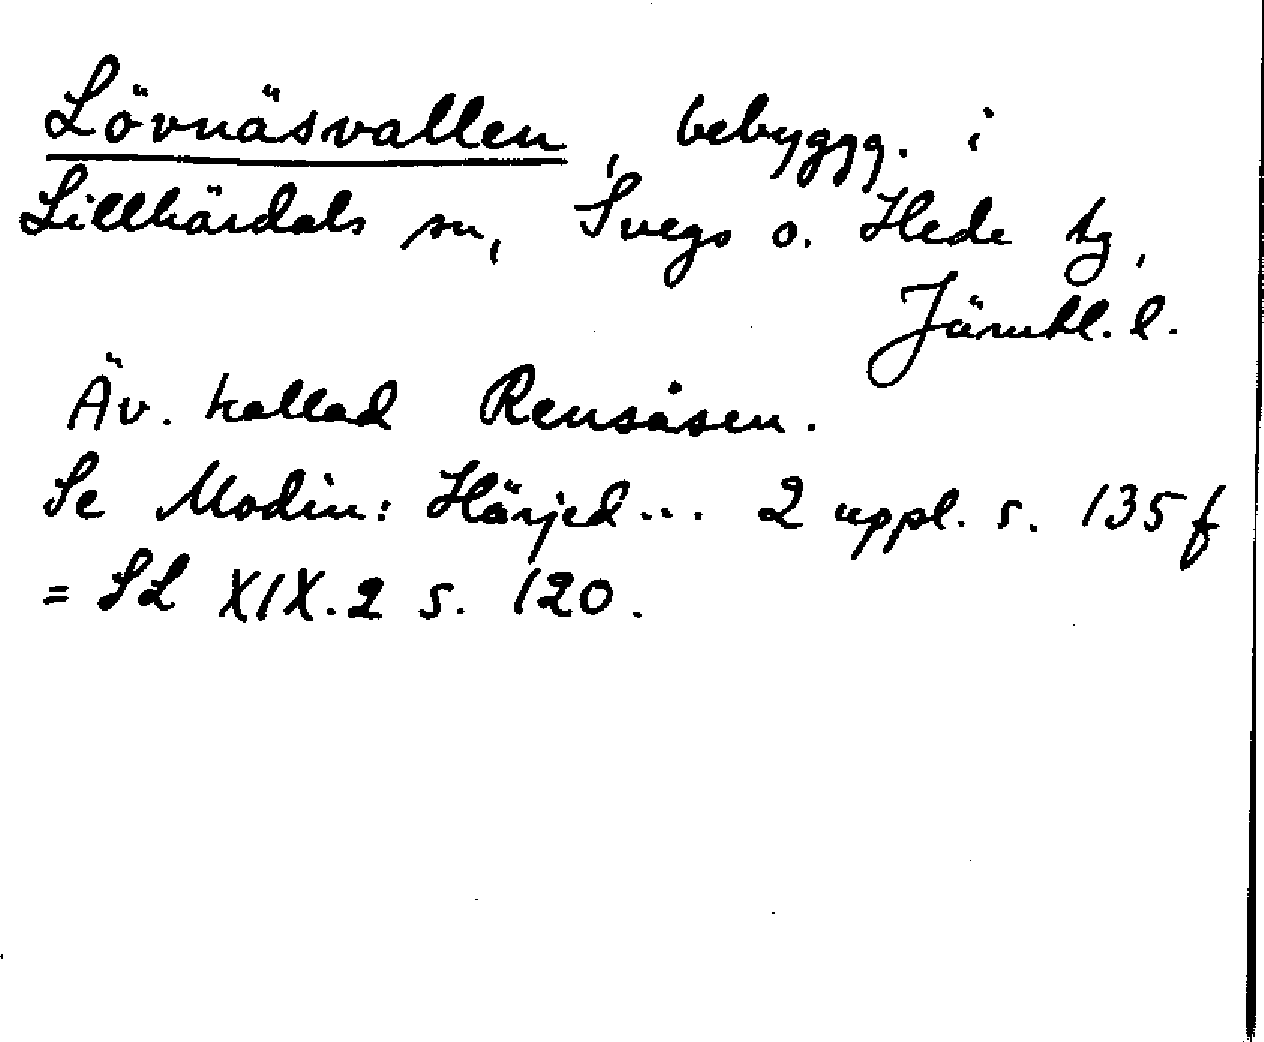 Lövnäsvallen, bebyggg. i
Lillhärdals sn, Svegs o. Hede tg,
Jämtl. l.
Äv. kallad Rensåsen.
Se Modin: Härjed... 2 uppl. s. 135 f
= SL XIX.2 s. 120.